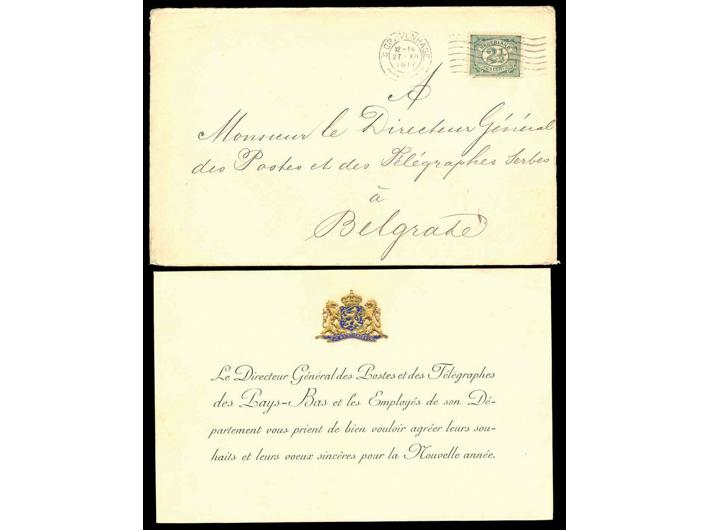 'S GRAVENHAGE
12-1N
27 XII
NEDERLAND
2½
A
Monsieur le Directeur Général
des Postes et des Télégraphes Serbes
à
Belgrade
Le Directeur Général des Postes et des Télégraphes
des Pays-Bas et les Employés de son Dé-
partement vous prient de bien vouloir agréer leurs sou-
haits et leurs voeux sincères pour la Nouvelle année.